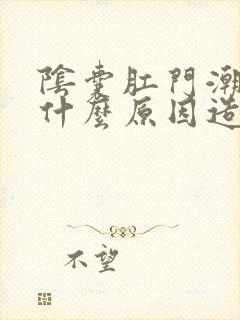 陰囊肛門潮
什麼原因造
不望